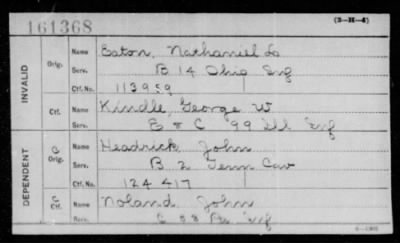 161368
(3-H-4)
INVALID
Orig.
Name Eaton, Nathaniel Lo
Serv. B 14 Ohio Inf
Ctf. No. 113959
Ctf.
Name Kindle, George W
Serv. E & C 99 Ill Inf
DEPENDENT
C
Orig.
Name Headrick John
Serv. B 2 Tenn Cav
Ctf. No. 124417
C
Ctf.
Name Noland John
Serv. C 58 Pa Inf